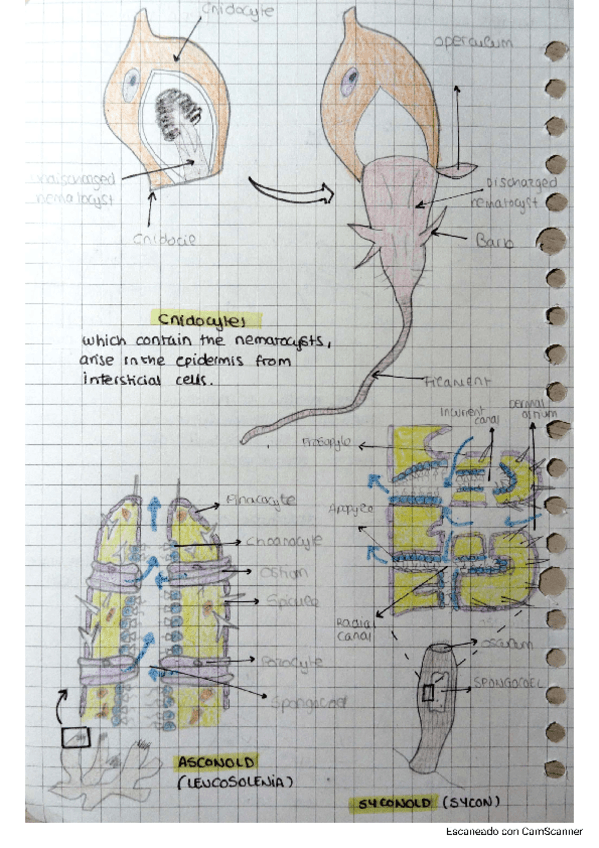 Cnidocyte
operculum
undischarged
nematocyst
Discharged
nematocyst
Cnidocil
Barb
Cnidocytes
which contain the nematocysts,
arise in the epidermis from
intersticial cells.
Filament
Incurrent
canal
Dermal
ostium
Prosopyle
Pinacocyte
Apopyle
Choanocyte
Ostium
Spicule
Radial
canal
Osculum
Porocyte
SPONGOCOEL
Spongocoel
ASCONOID
(LEUCOSOLENIA)
SYCONOID (SYCON)
Escaneado con CamScanner